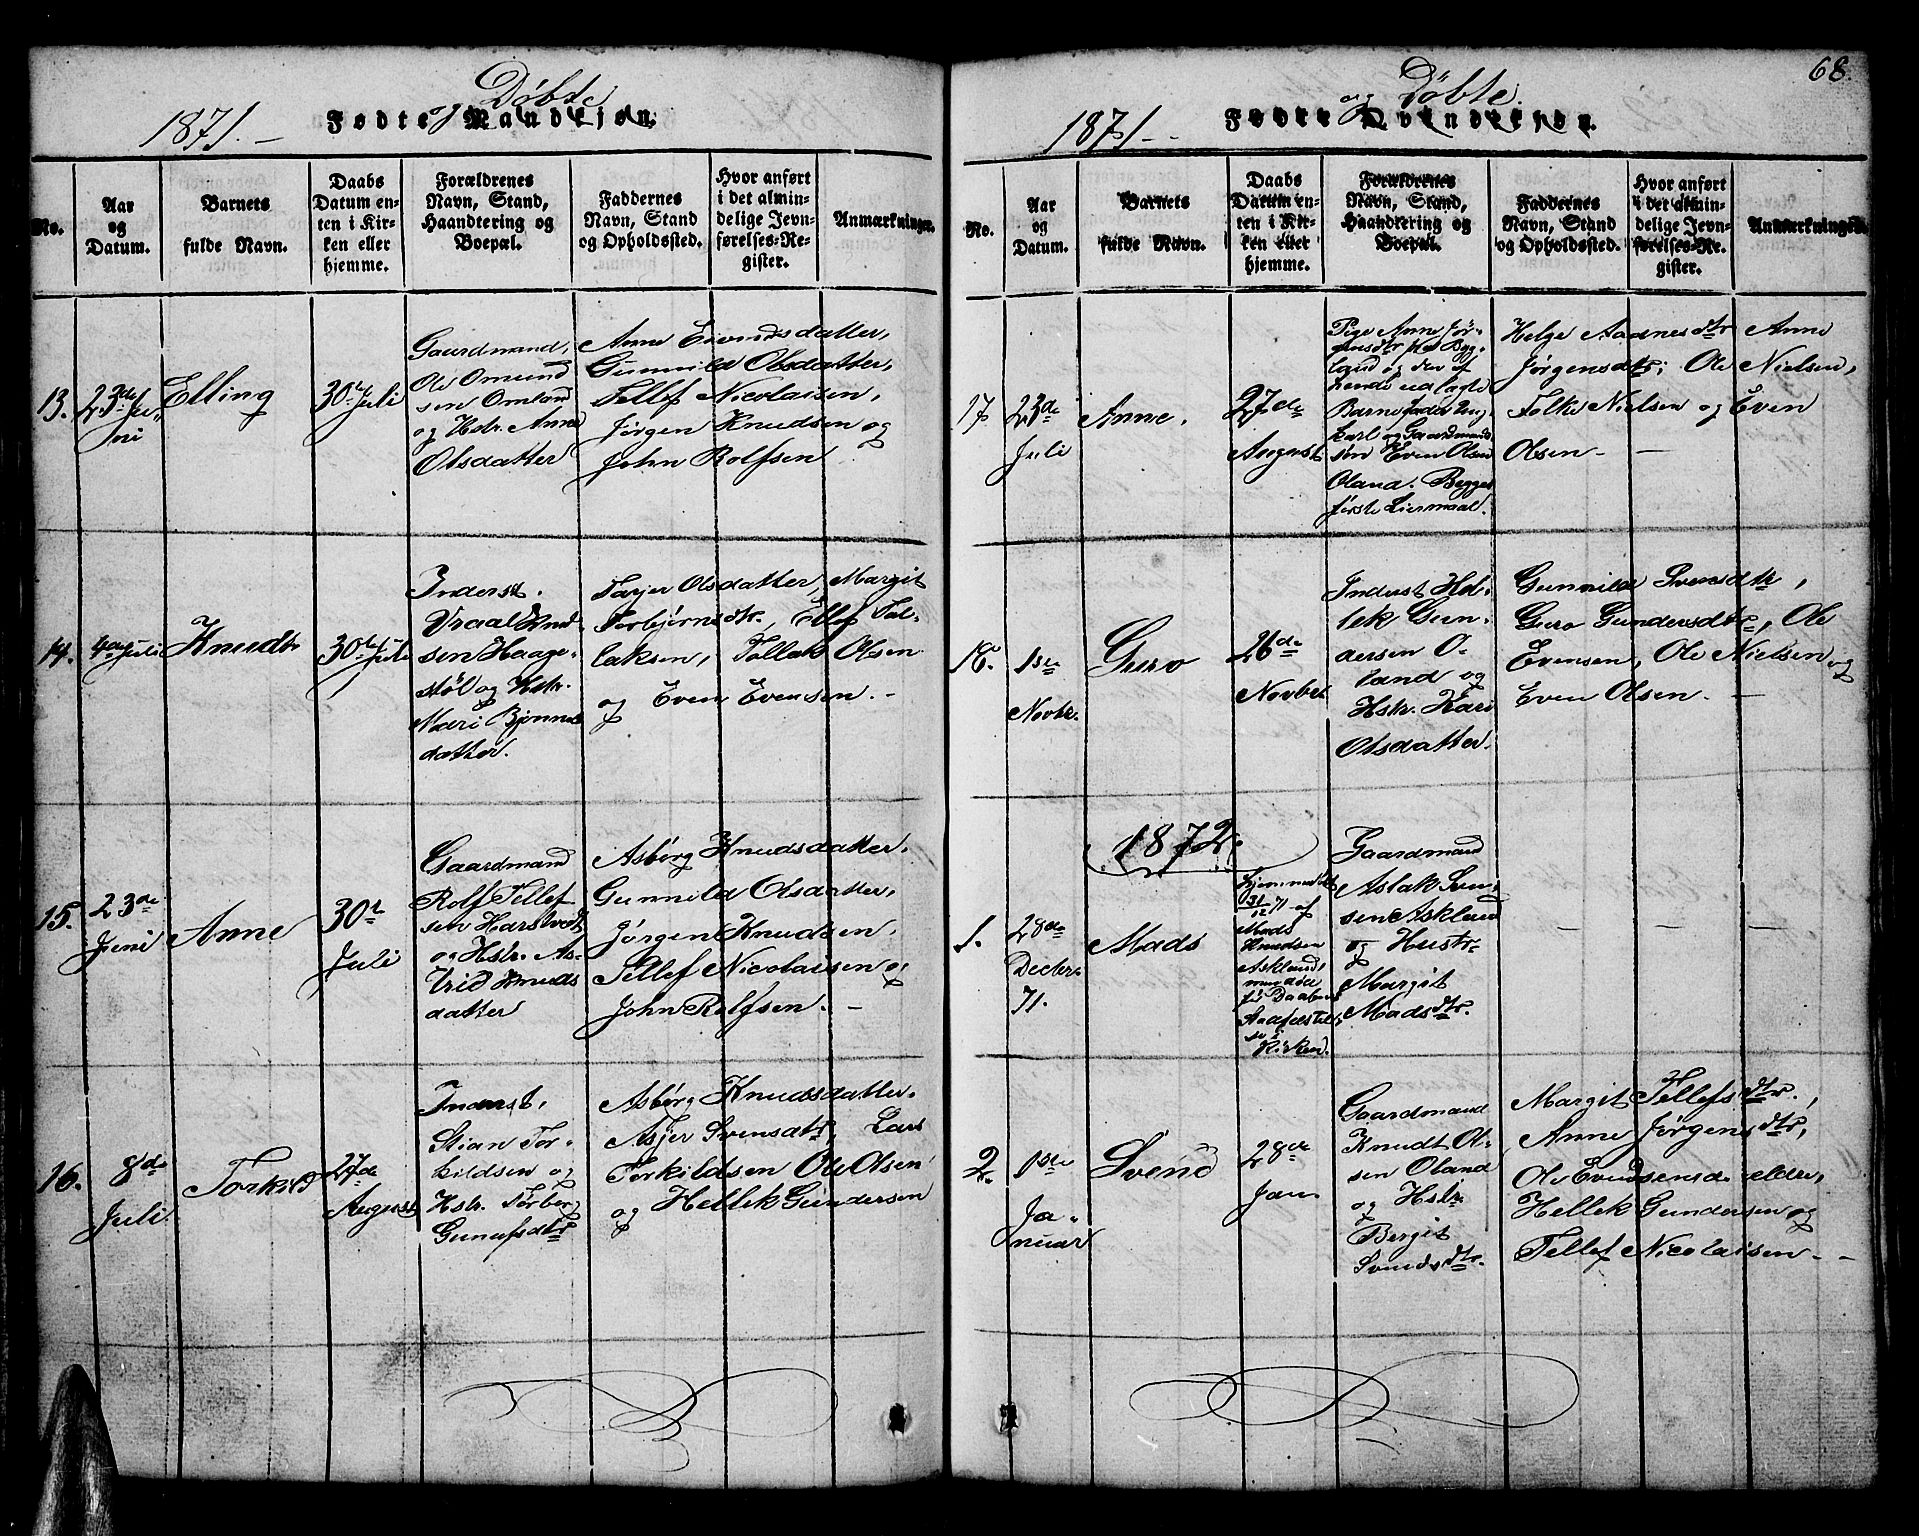 1871. -
Fødte og Døbte
Mandkjøn.
No.
Aar
og
Datum.
Barnets
fulde Navn.
Daabs
Datum en-
ten i Kir-
ken eller
hjemme.
Forældrenes
Navn, Stand,
Haandtering og
Boepæl.
Faddernes
Navn, Stand
og Opholdssted.
Hvor anført
i det almin-
delige Jevn-
førelses-Re-
gister.
Anmærkninger.
13.
23de Ju-
ni
Elling
30te Juli
Gaardmand,
Ole Omund
sen Omland
og Hstr. Anne
Olsdatter
Anne Evensdatter,
Gunnild Olsdatter,
Tellef Nicolaisen,
Jørgen Knudsen og
John Rolfsen
14.
4de Juli
Knudt
30te Juli
Inderst.
Vraal Knud-
sen Haage-
støl og Hstr.
Mari Bjørns
datter.
Tarjer Olsdatter, Margit
Torbjørnsdtr., Ellef Tal-
laksen, Tallak Olsen
og Even Evensen. -
15.
23de
Juni
Anne
30te
Juli
Gaardmand
Rolf Tellef
sen Harstvedt
og Hstr. As-
trid Knuds
datter
Asbørg Knudsdatter.
Gunnild Olsdatter,
Jørgen Knudsen,
Tellef Nicolaisen og
John Rolfsen. -
16.
8de
Juli
Torkild
27de
August
Inderst,
Stian Tor-
kildsen og
Hstr. Torber
Gunufsdtr
Asbørg Knudsdatter.
Asjer Svensdtr, Lars
Torkildsen Ole Olsen
og Hellek Gundersen
68.
1871 -
Fødte og Døbte.
Qvindekjøn.
No.
Aar
og
Datum.
Barnets
fulde Navn.
Daabs
Datum en-
ten i Kir-
ken eller
hjemme.
Forældrenes
Navn, Stand,
Haandtering og
Boepæl.
Faddernes
Navn, Stand
og Opholdssted.
Hvor anført
i det almin-
delige Jevn-
førelses-Re-
gister.
Anmærkninger.
17
23de
Juli
Anne.
27de
August
Pige Anne Jør-
gensdtr paa Byg-
land og den af
hende udlagte
Barnefader Ung
karl og Gaardmands
søn Even Olsen
Oland. Begges
første Leiermaal.
Helge Aadnesdtr Anne
Jørgensdtr; Ole Nielsen,
Folke Nielsen og Even
Olsen - -
18.
1ste
Novbr.
Guro
26de
Novber
Inderst Hel-
lek Gun-
dersen O-
land og
Hstr. Kari
Olsdatter.
Gunnild Svensdtr,
Guro Gundersdtr, Ole
Evensen, Ole Nielsen og
Even Olsen. -
1872.
1.
28de
Decbr.
71.
Mads
Hjemmedøbt
31/12 71 af
Mads
Knudsen
Askland,
men døde
før Daabens
Stadfæstel-
se i
Kirken.
Gaardmand
Aslak Sven-
sen Askland
og Hustr.
Margit
Madsdtr.
- - -
2.
1ste
Ja-
nuar
Svend
28de
Jan.
Gaardmand
Knudt Ol-
sen Oland
og Hstr.
Bergit
Svendsdtr.
Margit Tellefsdtr.,
Anne Jørgensdtr,
Ole Evendsen d. eldre,
Hellek Gundersen og
Tellef Nicolaisen - -